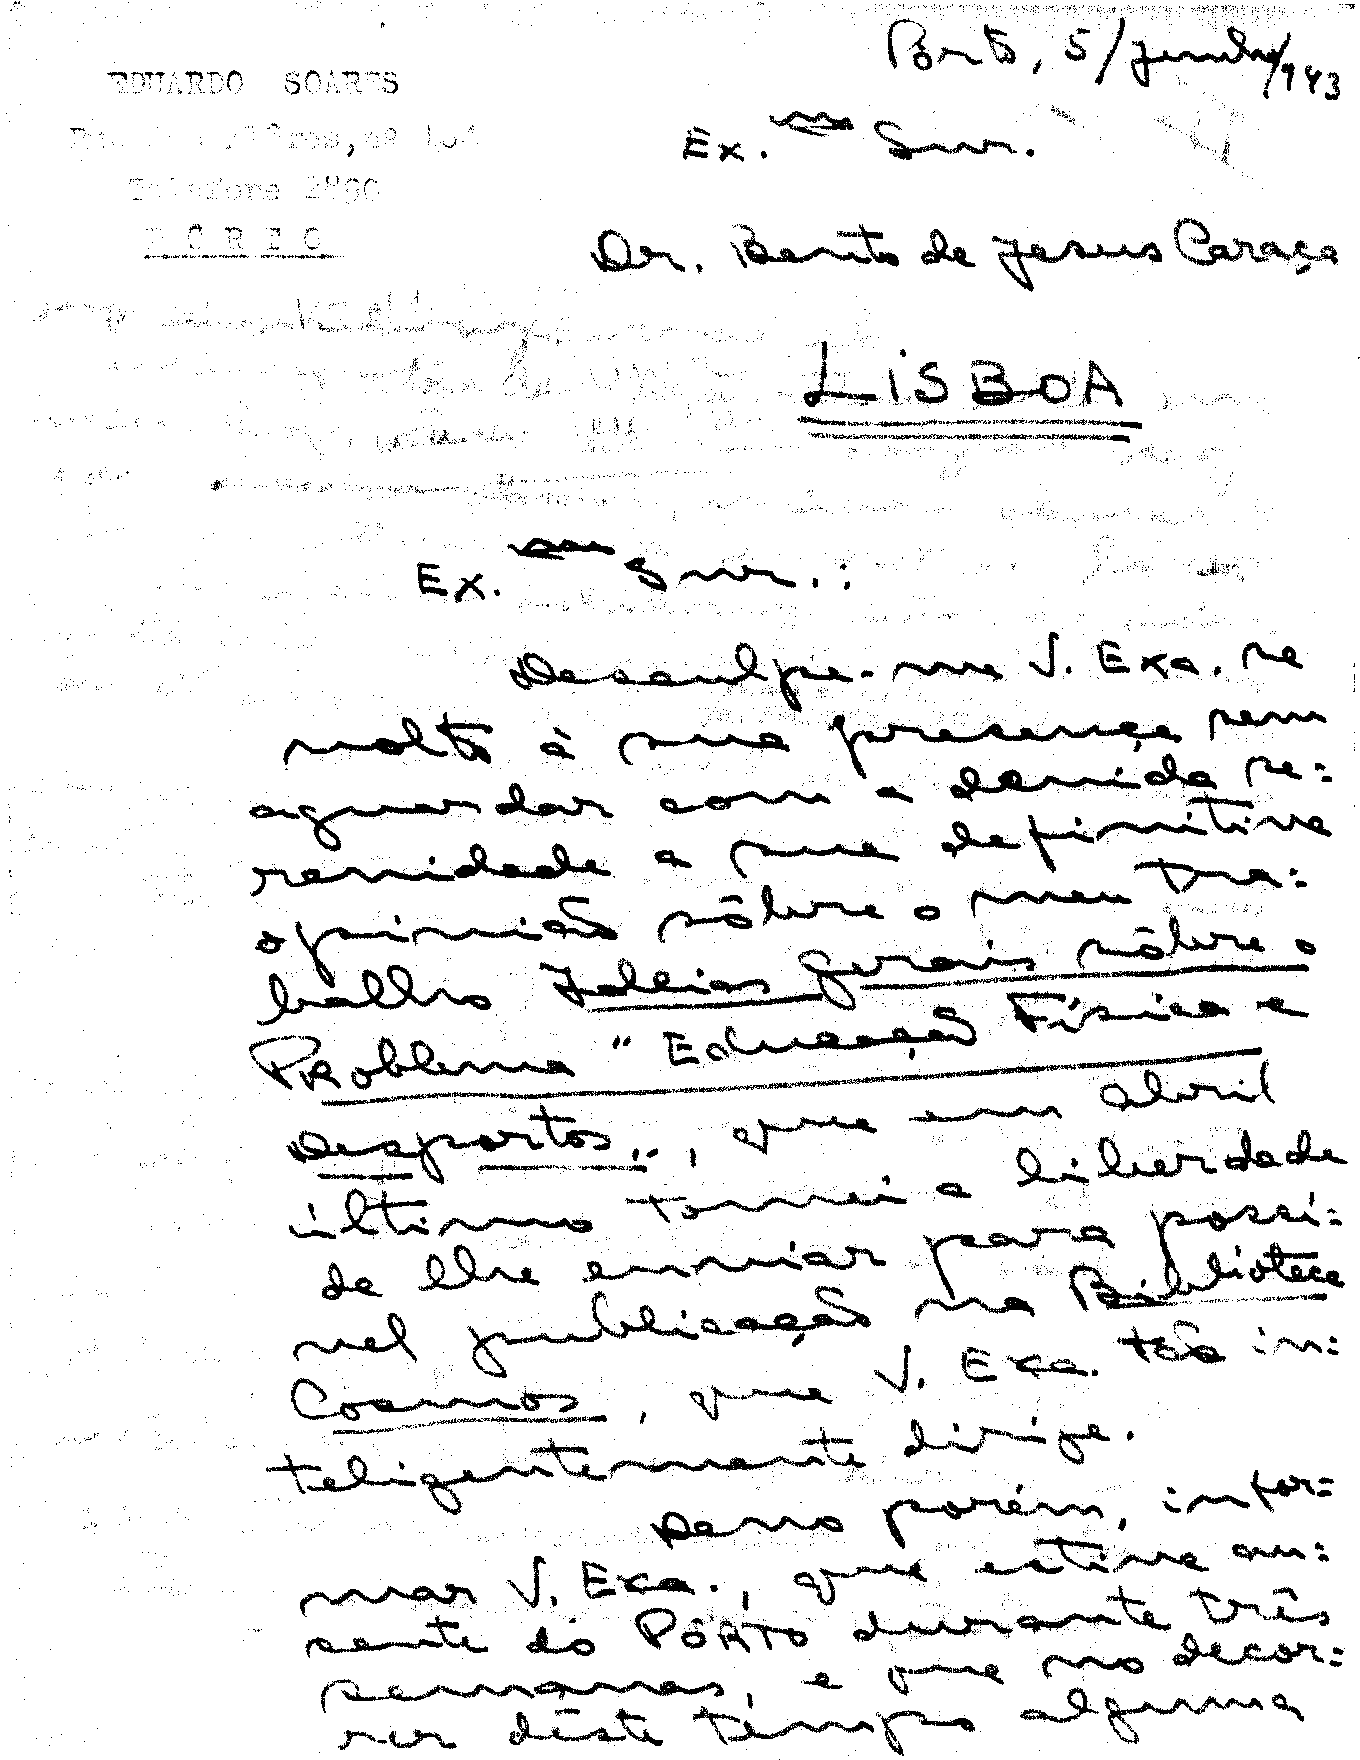 Pôrto, 5/junho/943
EDUARDO SOARES
Telefone
PORTO
Ex.mo Snr.
Dr. Bento de Jesus Caraça
LISBOA
Ex.mo Snr.:
Desculpe-me V. Exa. se
volto à sua presença sem
aguardar com a devida se=
renidade a sua definitiva
opinião sôbre o meu tra=
balho Ideias gerais sôbre o
Problema "Educação Física e
Desportos", que em abril
último tomei a liberdade
de lhe enviar para possí=
vel publicação na Biblioteca
Cosmos, que V. Exa. tão in=
teligentemente dirige.
Devo porém, infor=
mar V. Exa., que estive au=
sente do PÔRTO durante três
semanas, e que no decor=
rer dêste tempo alguma